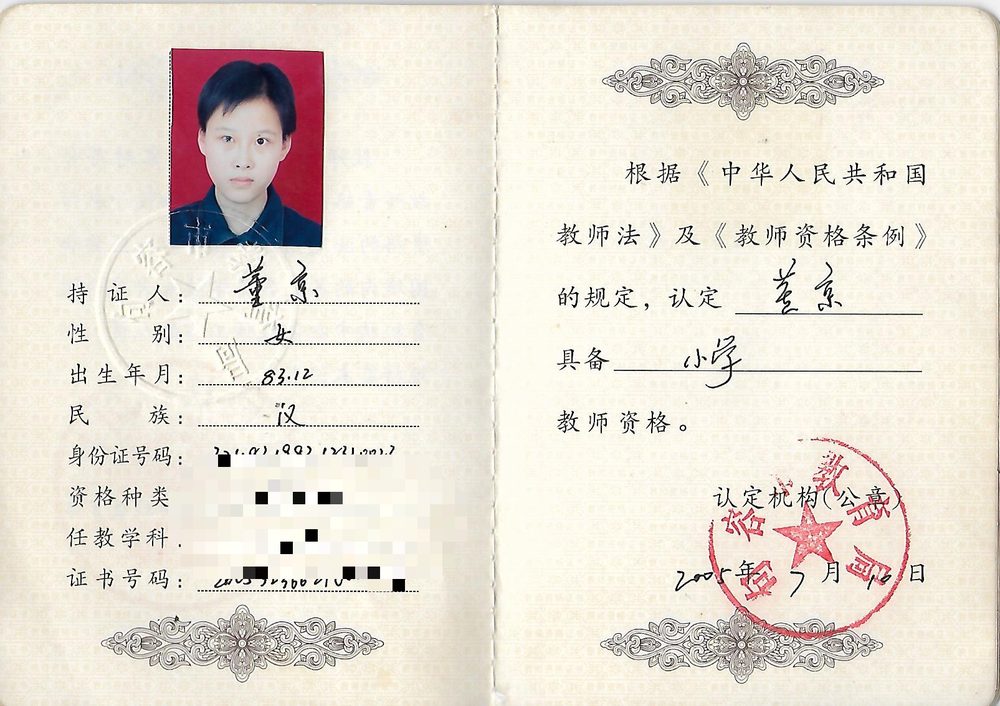 持证人：董京
性别：女
出生年月：83.12
民族：汉
身份证号码：
资格种类
任教学科
证书号码：
根据《中华人民共和国
教师法》及《教师资格条例》
的规定，认定 董京
具备 小学
教师资格。
认定机构（公章）
2005年7月10日
句容市教育局